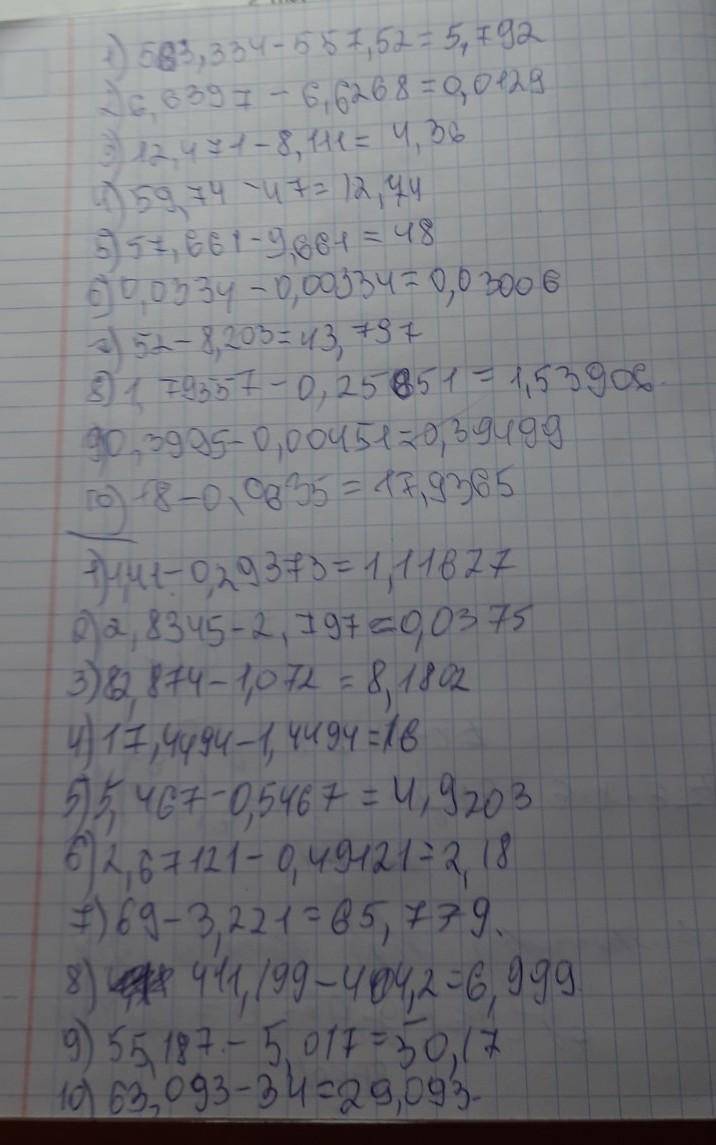 1) 563,334-557,52=5,792
2) 6,6397-6,6268=0,0129
3) 12,471-8,111=4,36
4) 59,74-47=12,74
5) 57,661-9,661=48
6) 0,0334-0,00334=0,03006
7) 52-8,203=43,797
8) 1,79357-0,25451=1,53906
9) 0,3995-0,00451=0,39499
10) 18-0,0635=17,9365
1) 1,41-0,29373=1,11627
2) 2,8345-2,797=0,0375
3) 82,874-1,072=8,1802
4) 17,4494-1,4494=16
5) 5,467-0,5467=4,9203
6) 2,67121-0,49121=2,18
7) 69-3,221=65,779.
8) 411,199-404,2=6,999
9) 55,187-5,017=50,17
10) 63,093-34=29,093